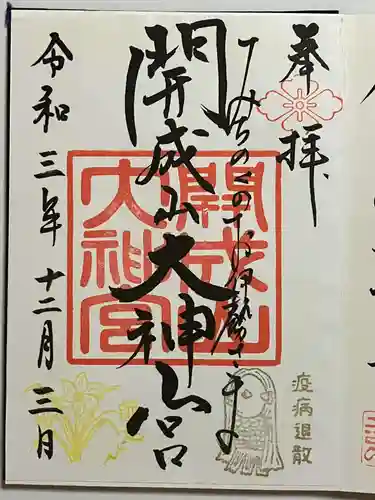 奉拝
みちのくのお伊勢さま
開成山大神宮
令和三年十二月三日
開成山大神宮
疫病退散